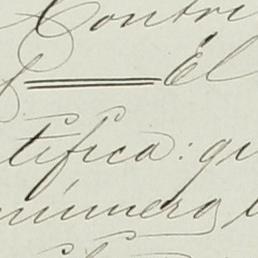 Contri
El
tifica: qu
número